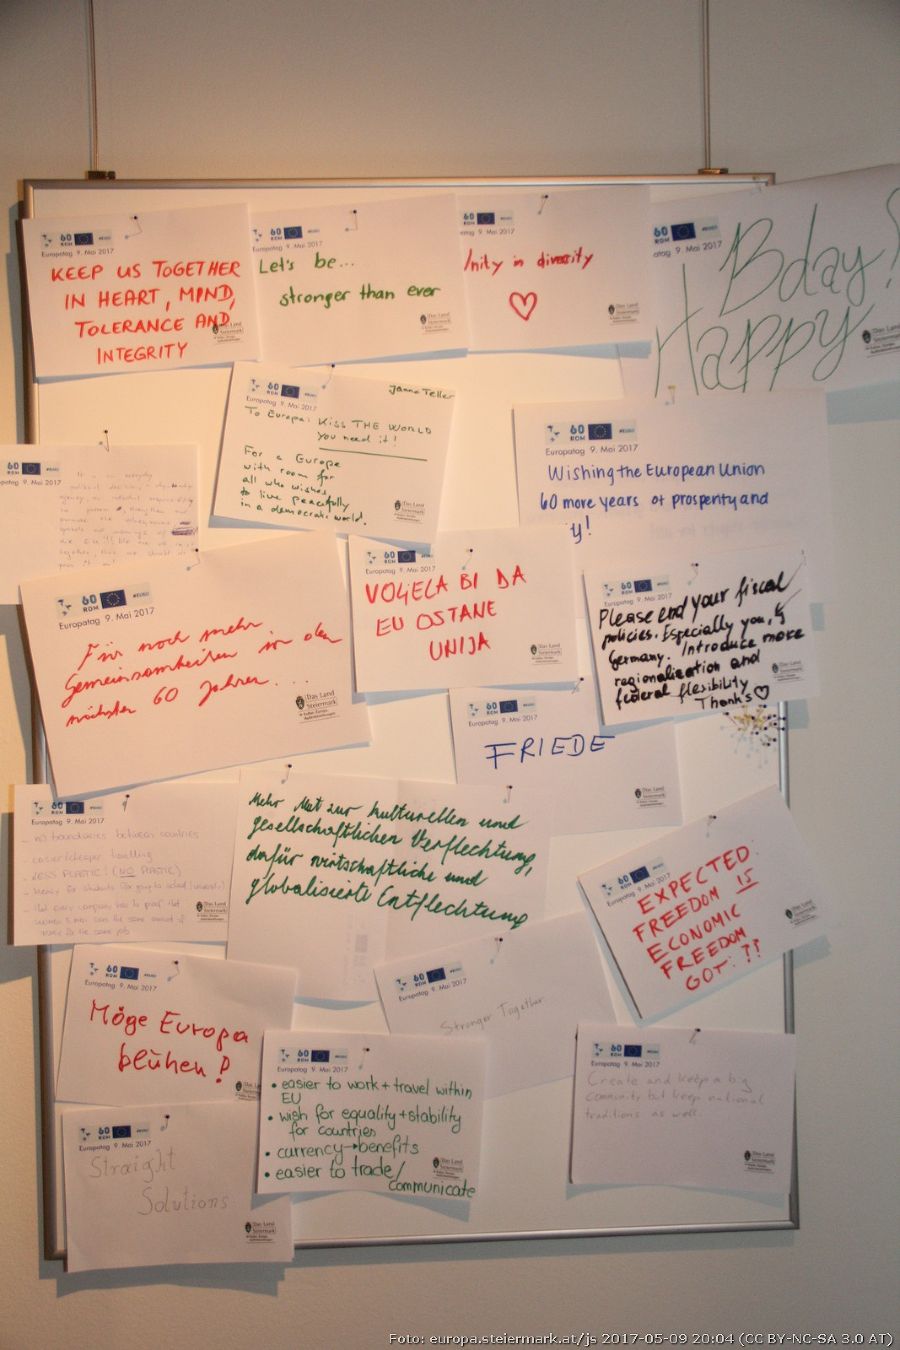 60
ROM
#EURO
Europatag 9. Mai 2017
KEEP US TOGETHER
IN HEART, MIND,
TOLERANCE AND
INTEGRITY
Das Land
Steiermark
60
ROM
#EURO
Europatag 9. Mai 2017
Let's be...
stronger than ever
Das Land
Steiermark
60
ROM
9. Mai 2017
Unity in diversity
♡
Das Land
Steiermark
60
ROM
9. Mai 2017
Bday!
Happy
Das Land
Steiermark
60
ROM
#EURO
Europatag 9. Mai 2017
Janne Teller
To Europa: KISS THE WORLD
You need it!
For a Europe
with room for
all who wishes
to live peacefully
in a democratic world.
Das Land
Steiermark
60
ROM
#EURO
Europatag 9. Mai 2017
Wishing the European Union
60 more years of prosperity and
y!
60
ROM
#EURO
9. Mai 2017
60
ROM
#EURO
Europatag 9. Mai 2017
Für noch mehr
Gemeinsamkeiten in den
nächsten 60 Jahren. . . .
Das Land
Steiermark
60
ROM
Europatag 9. Mai 2017
VOLJELA BI DA
EU OSTANE
UNIJA
Das Land
Steiermark
60
ROM
Please end your fiscal
policies. Especially you,
Germany. Introduce more
regionalization and
federal flexibility
Thanks♡
Das Land
Steiermark
60
ROM
Europatag 9. Mai 2017
FRIEDE
Das Land
Steiermark
60
ROM
#EURO
Europatag 9. Mai 2017
- no boundaries between countries
- easier/cheaper travelling
- LESS PLASTIC! (NO PLASTIC)
Das Land
Steiermark
Mehr Mut zur kulturellen und
gesellschaftlichen Verflechtung,
dafür wirtschaftliche und
globalisierte Entflechtung
60
ROM
Europatag 9. Mai 2017
EXPECTED
FREEDOM IS
ECONOMIC
FREEDOM
GOT. ??
Das Land
Steiermark
60
ROM
#EURO
Europatag 9. Mai 2017
Möge Europa
blühen!
60
ROM
Europatag 9. Mai 2017
Stronger Together
60
ROM
#EURO
Europatag 9. Mai 2017
• easier to work + travel within
EU
• wish for equality + stability
for countries
• currency → benefits
• easier to trade/
communicate
Das Land
Steiermark
60
ROM
#EURO
Europatag 9. Mai 2017
Create and keep a big
community but keep national
traditions as well.
Das Land
Steiermark
60
ROM
#EURO
Europatag 9. Mai 2017
Straight
Solutions
Das Land
Steiermark
Foto: europa.steiermark.at/js 2017-05-09 20:04 (CC BY-NC-SA 3.0 AT)